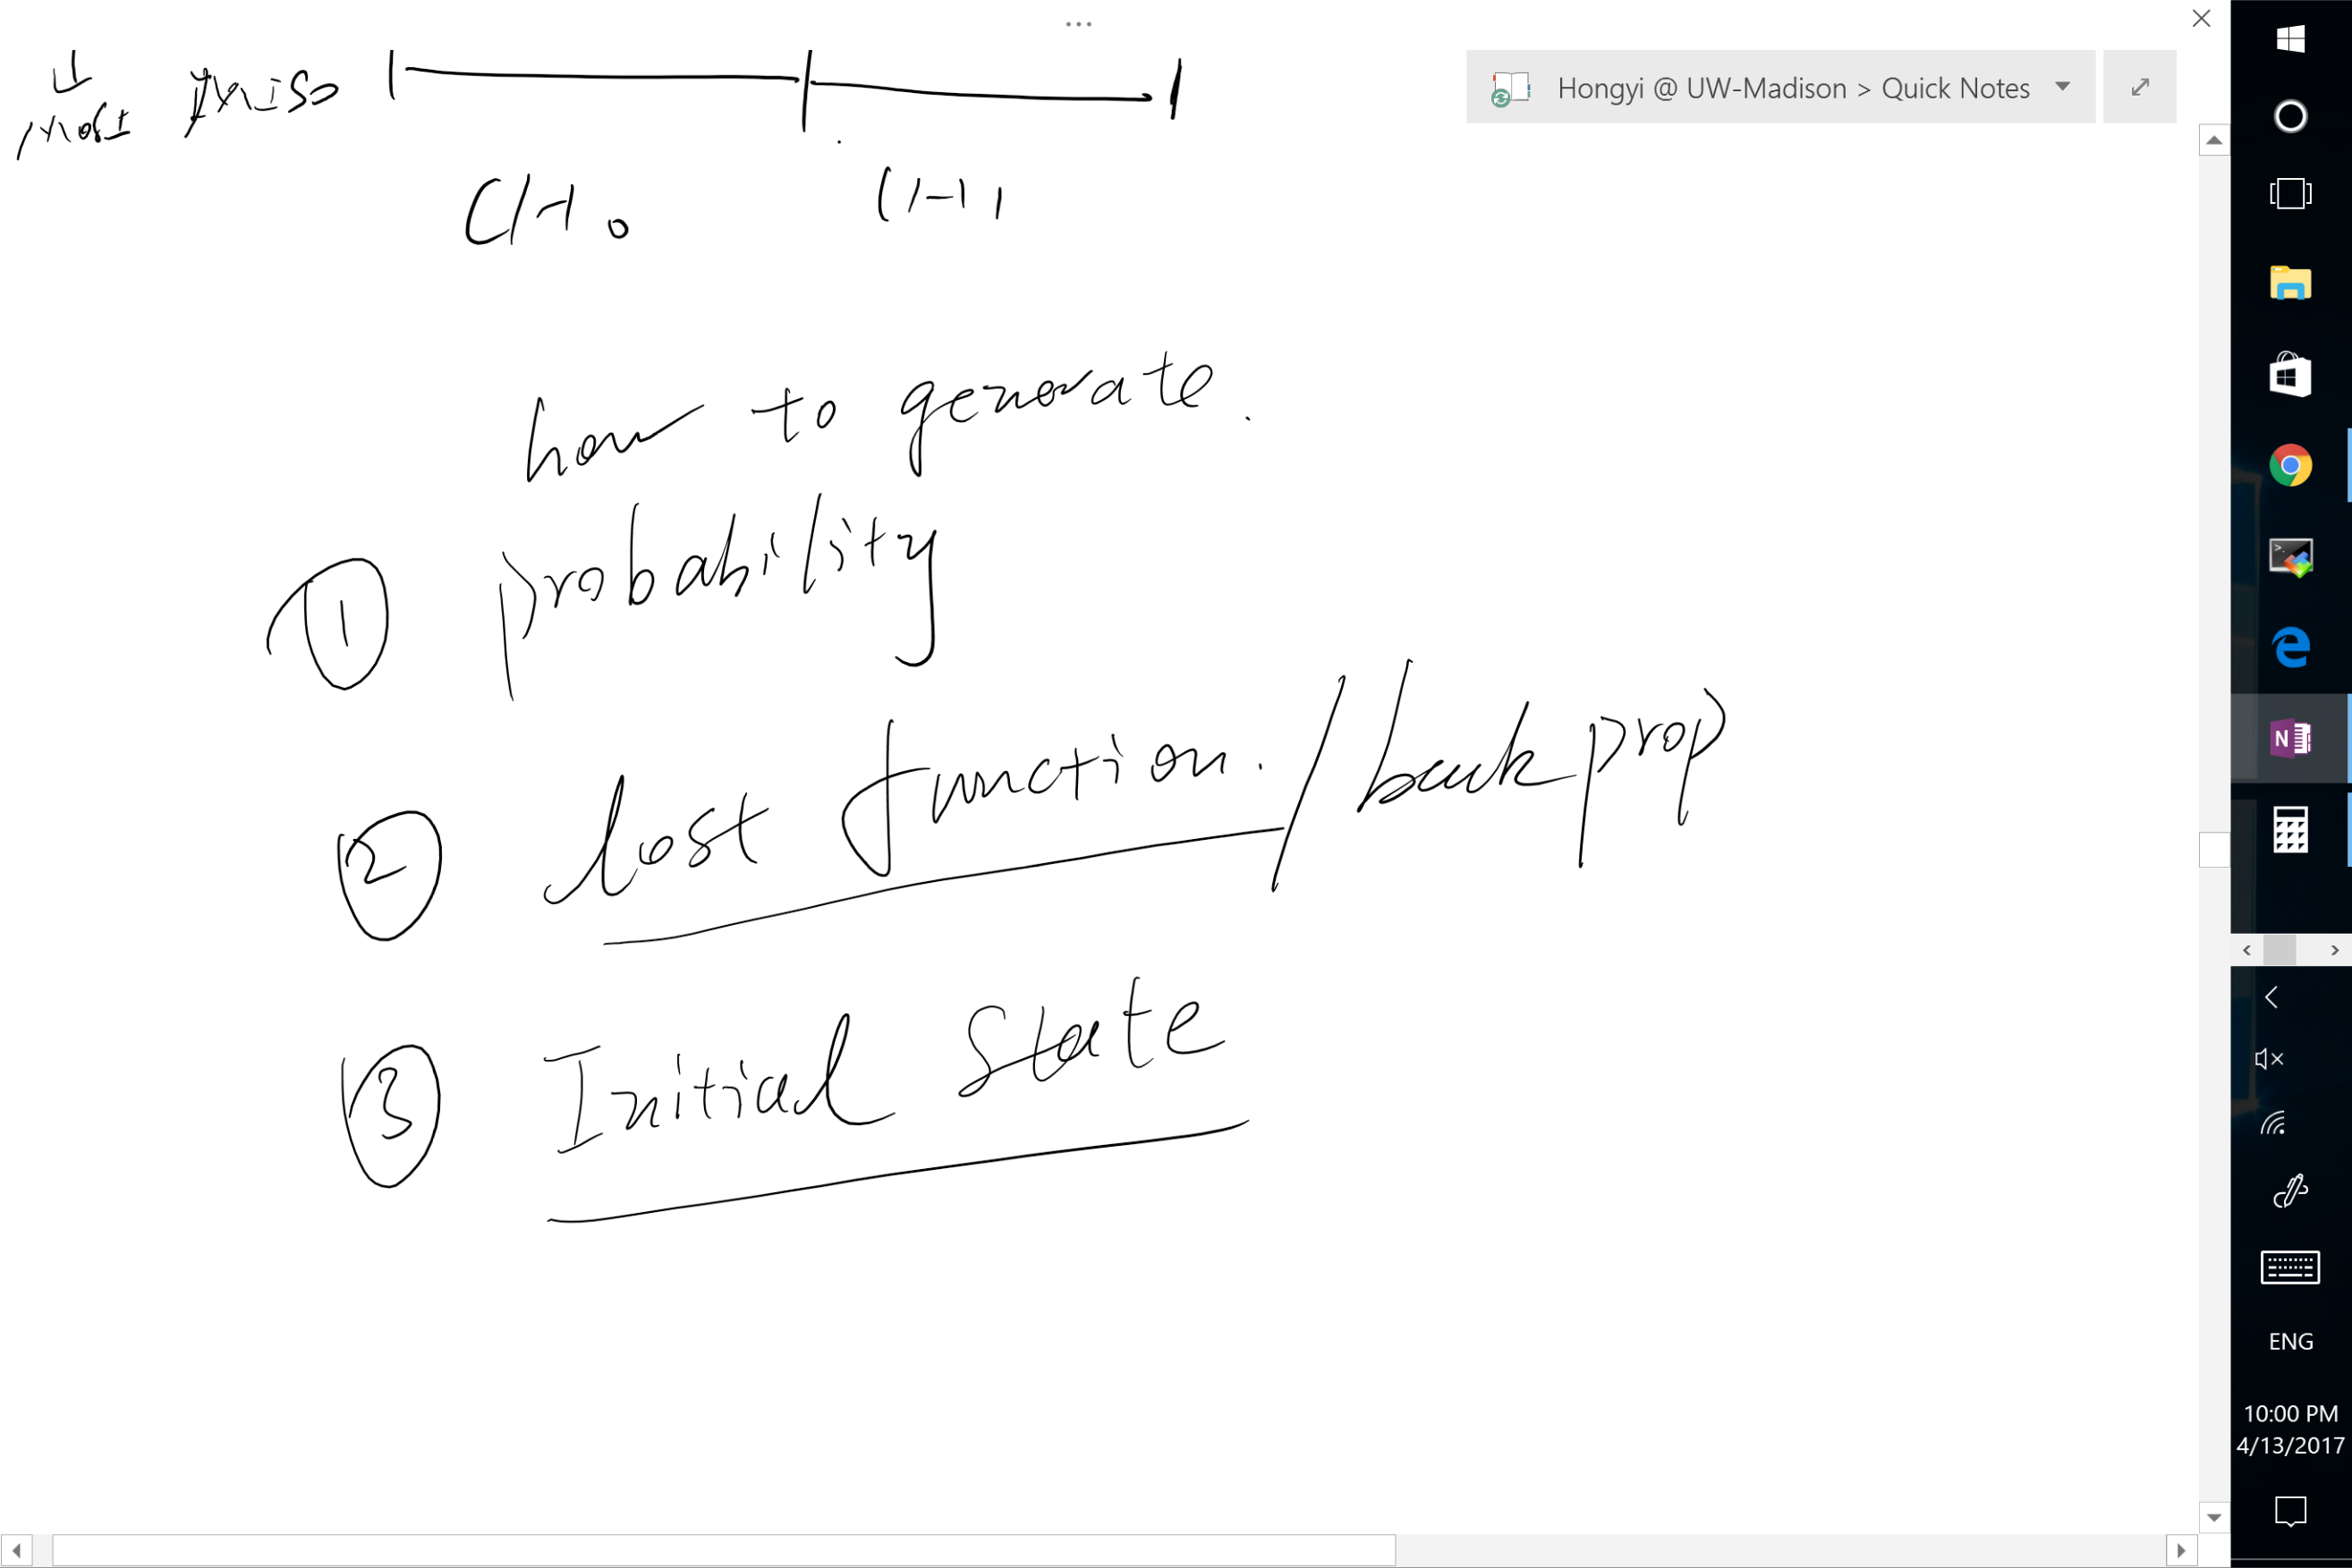 Hongyi @ UW-Madison > Quick Notes
CH0
CH1
how to generate.
① probability
② lost function. / back prop
③ Initial State
ENG
10:00 PM
4/13/2017